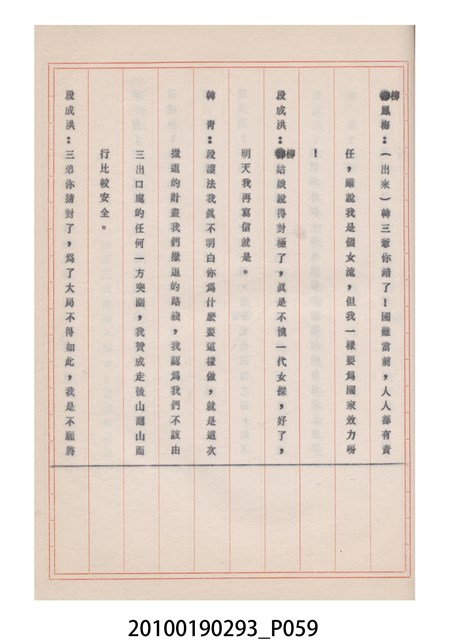 柳鳳梅：（出來）韓三爺你錯了！國難當前，人人都有責
任，雖說我是個女流，但我一樣要為國家效力呀
！
段成洪：柳姑娘說得對極了，眞是不愧一代女傑，好了，
明天我再寫信就是。
韓　青：段護法我眞不明白你爲什麼要這樣做，就是這次
撤退的計畫我們撤退的路綫，我認爲我們不該由
三出口處的任何一方突圍，我贊成走後山翻山而
行比較安全。
段成洪：三弟你猜對了，爲了大局不得如此，我是不願將
20100190293_P059